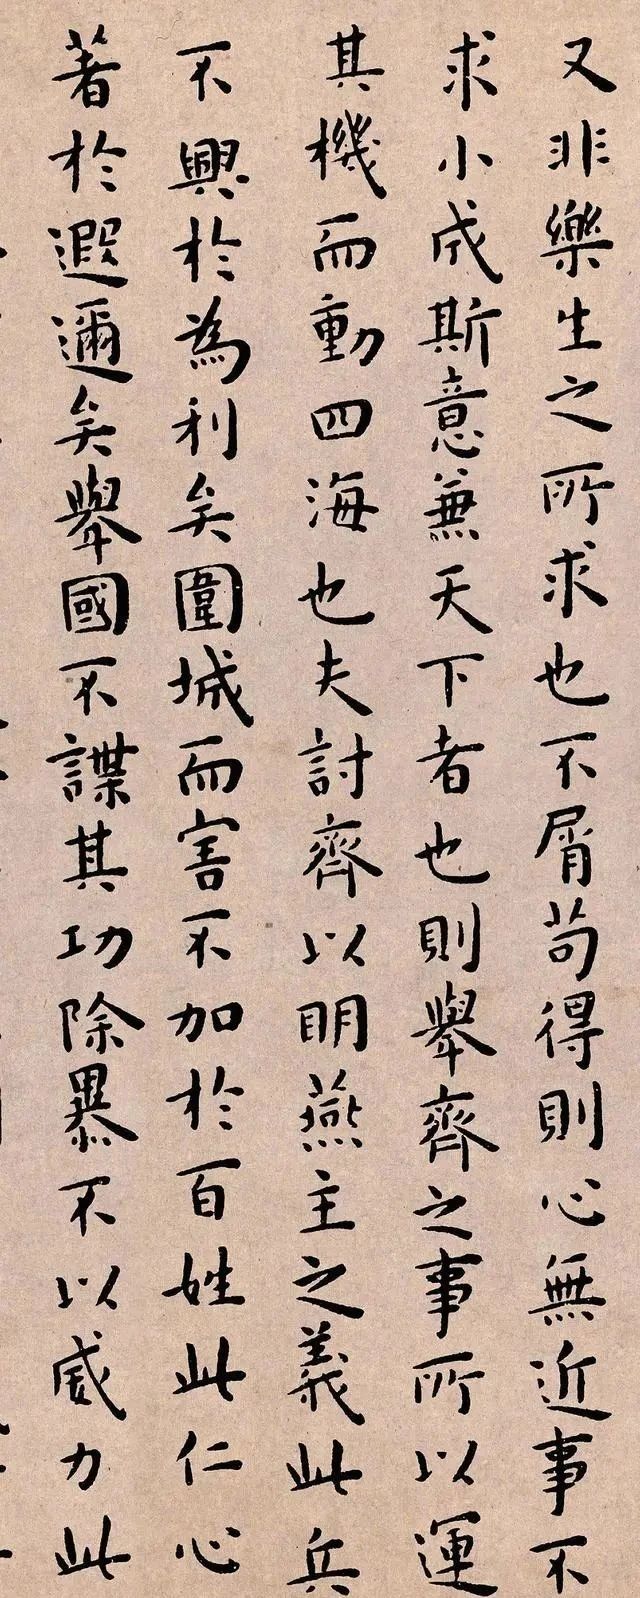 又非樂生之所求也不屑苟得則心無近事不
求小成斯意兼天下者也則舉齊之事所以運
其機而動四海也夫討齊以明燕主之義此兵
不興於為利矣圍城而害不加於百姓此仁心
著於遐邇矣舉國不謀其功除暴不以威力此